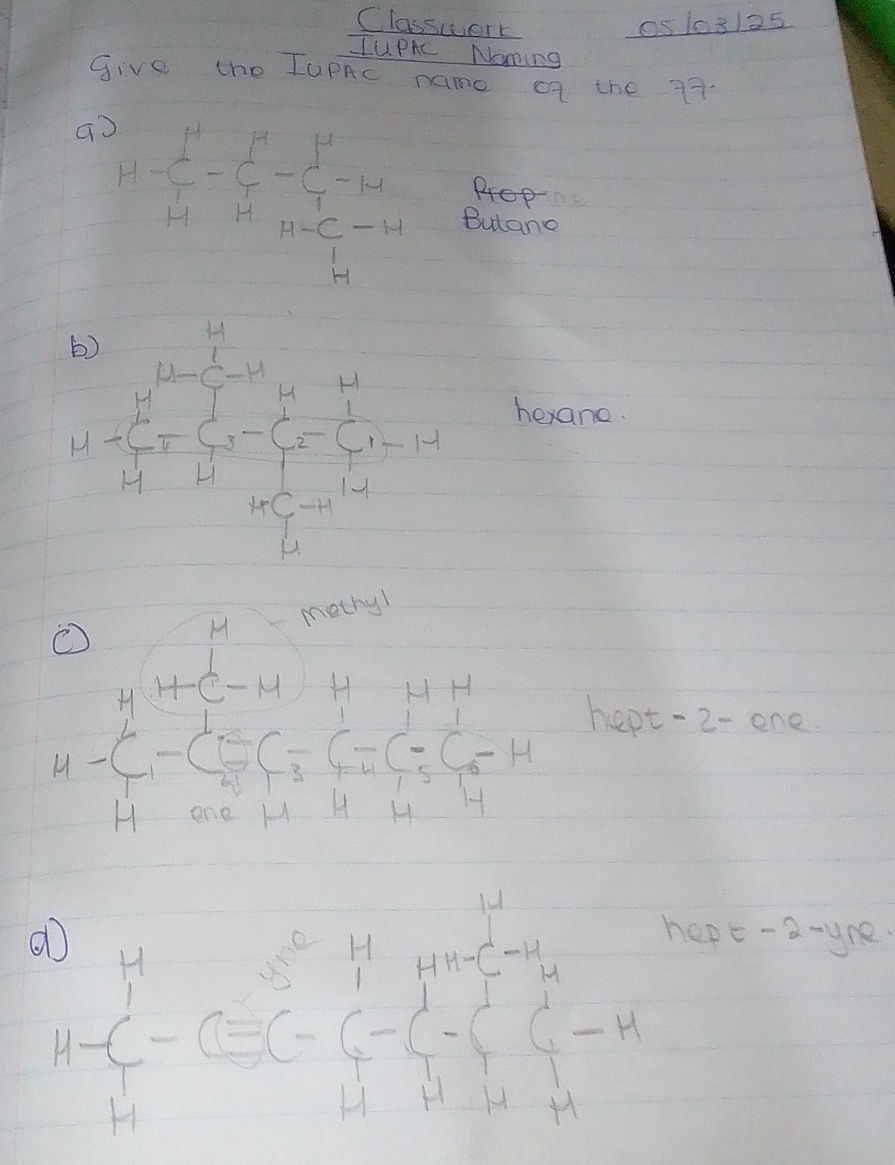 Classwork 05/03/25
IUPAC Naming
Give the IUPAC name of the ff.
a)
H H H
H-C-C-C-H
H H H-C-H
H
Prop
Butane
b)
H
H-C-H
H H H
H-C-C3-C2-C1-H
H H H
H-C-H
H
hexane.
c)
methyl
H
H H-C-H H H H
H-C1-C=C3-C4-C5-C6-H
H ene H H H H
hept-2-ene
d)
H
H yne H HH-C-H H
H-C-C≡C-C-C-C C-H
H H H H H
hept-2-yne.